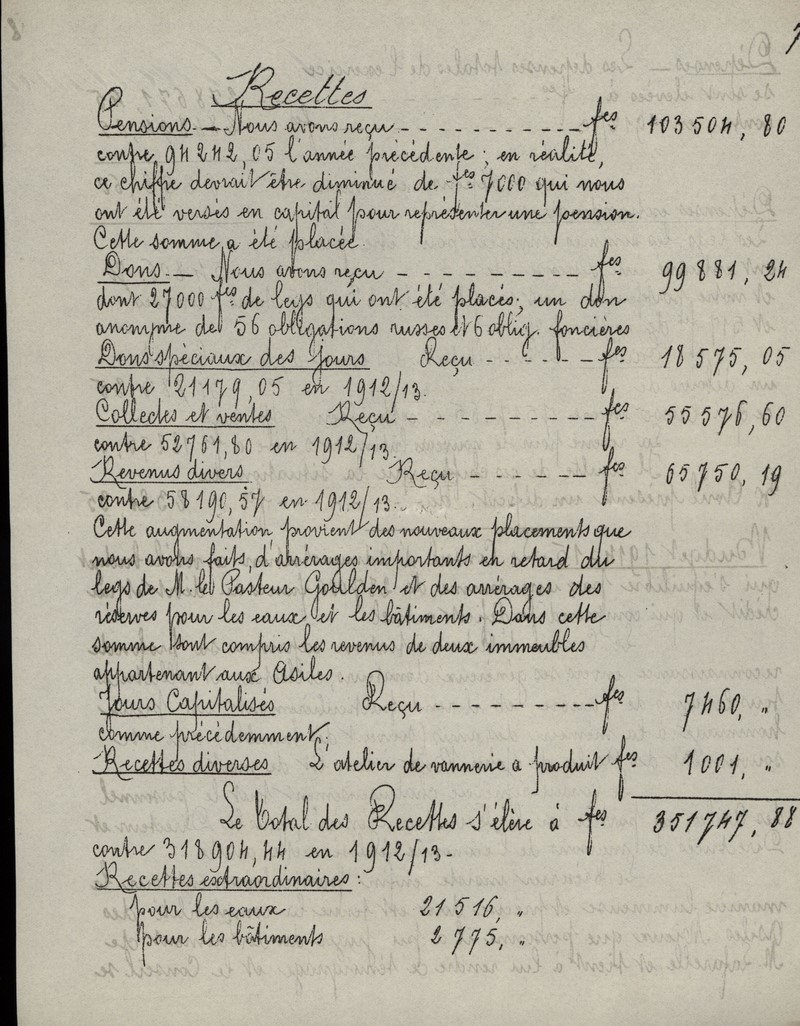 7
Recettes
Pensions. — Nous avons reçu - - - - - - - - - - - fcs 103 504, 80
contre 94 242,05 l'année précédente; en réalité,
ce chiffre devrait être diminué de fcs 7000 qui nous
ont été versés en capital pour représenter une pension.
Cette somme a été placée.
Dons. — Nous avons reçu - - - - - - - - - fcs 99 881, 24
dont 27000 fcs de legs qui ont été placés; un don
anonyme de 56 obligations russes et 6 oblig. foncières
Dons spéciaux des Jours Reçu - - - - - - fcs 18 575, 05
contre 21179,05 en 1912/13.
Collectes et ventes Reçu - - - - - - - - - fcs 55 576,60
contre 52761,80 en 1912/13.
Revenus divers Reçu - - - - - - - fcs 65 750, 19
contre 58190,57 en 1912/13.
Cette augmentation provient des nouveaux placements que
nous avons faits, d'arrérages importants en retard du
legs de M. le Pasteur Goulden et des arrérages des
réserves pour les eaux et les bâtiments. Dans cette
somme sont compris les revenus de deux immeubles
appartenant aux Asiles.
Jours Capitalisés Reçu - - - - - - - - - fcs 7460, "
comme précédemment;
Recettes diverses L'atelier de vannerie a produit fcs 1001, "
Le Total des Recettes s'élève à fcs 351747, 88
contre 318904,44 en 1912/13-
Recettes extraordinaires:
pour les eaux 21 516, "
pour les bâtiments 2 775, "